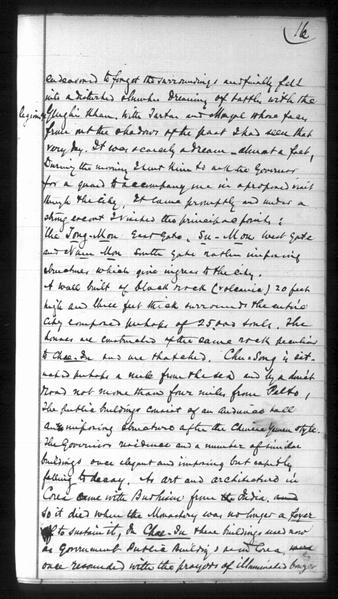 16
endeavored to forget the surroundings and finally fell
into a disturbed slumber Dreaming of battles with the
legions
Genghis Kham, with Tartar and Mongol whose faces
from out the shadows of the past I had seen that
very day. It was scarcely a dream – almost a fact,
During the morning I sent Kim to ask the Governor
for a guard to accompany me in a proposed visit
through the City, It came promptly and under a
strong escort I visited the principal points:
the Tong-Mon East Gate, Su-Mon West Gate
and Nam Mon South Gate rather imposing
structures which give ingress to the City.
A wall built of black rock (volcanic) 20 feet
high and three feet thick surrounds the entire
City composed perhaps of 25,000 souls. The
houses are constructed of the same rock peculiar
to Chae-Ju and are thatched. Chu-Song is sit-
uated perhaps a mile from the sea and by a direct
road not more than four miles from
The public buildings consist of an audience hall
an imposing structure after the Chinese Yamen style.
The Governors residence and a number of similar
buildings once elegant and imposing but rapidly
falling to decay. As art and architecture in
Corea came with Budhism from the India. and
so it died when the Monastery was no longer a power
to sustain it, In Chae-Ju these buildings used now
as Government Public Buildings as in Corea,
once resounded with the prayers of illuminated